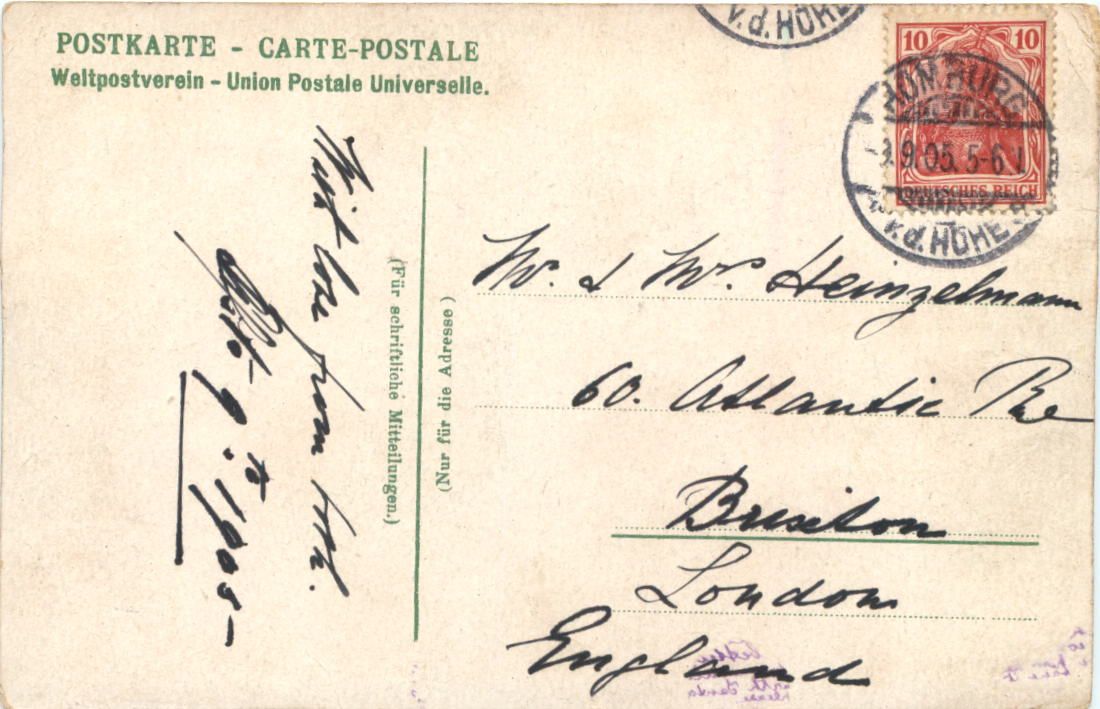 POSTKARTE - CARTE-POSTALE
Weltpostverein - Union Postale Universelle.
v.d. HÖHE
10 10
DEUTSCHES REICH
HOMBURG
9.05. 5-6
v.d. HÖHE
With love from
Sept 9th 1905-
(Für schriftliche Mitteilungen.)
(Nur für die Adresse)
Mr. & Mrs Heinzelmann
60. Atlantic
Brixton
London
England